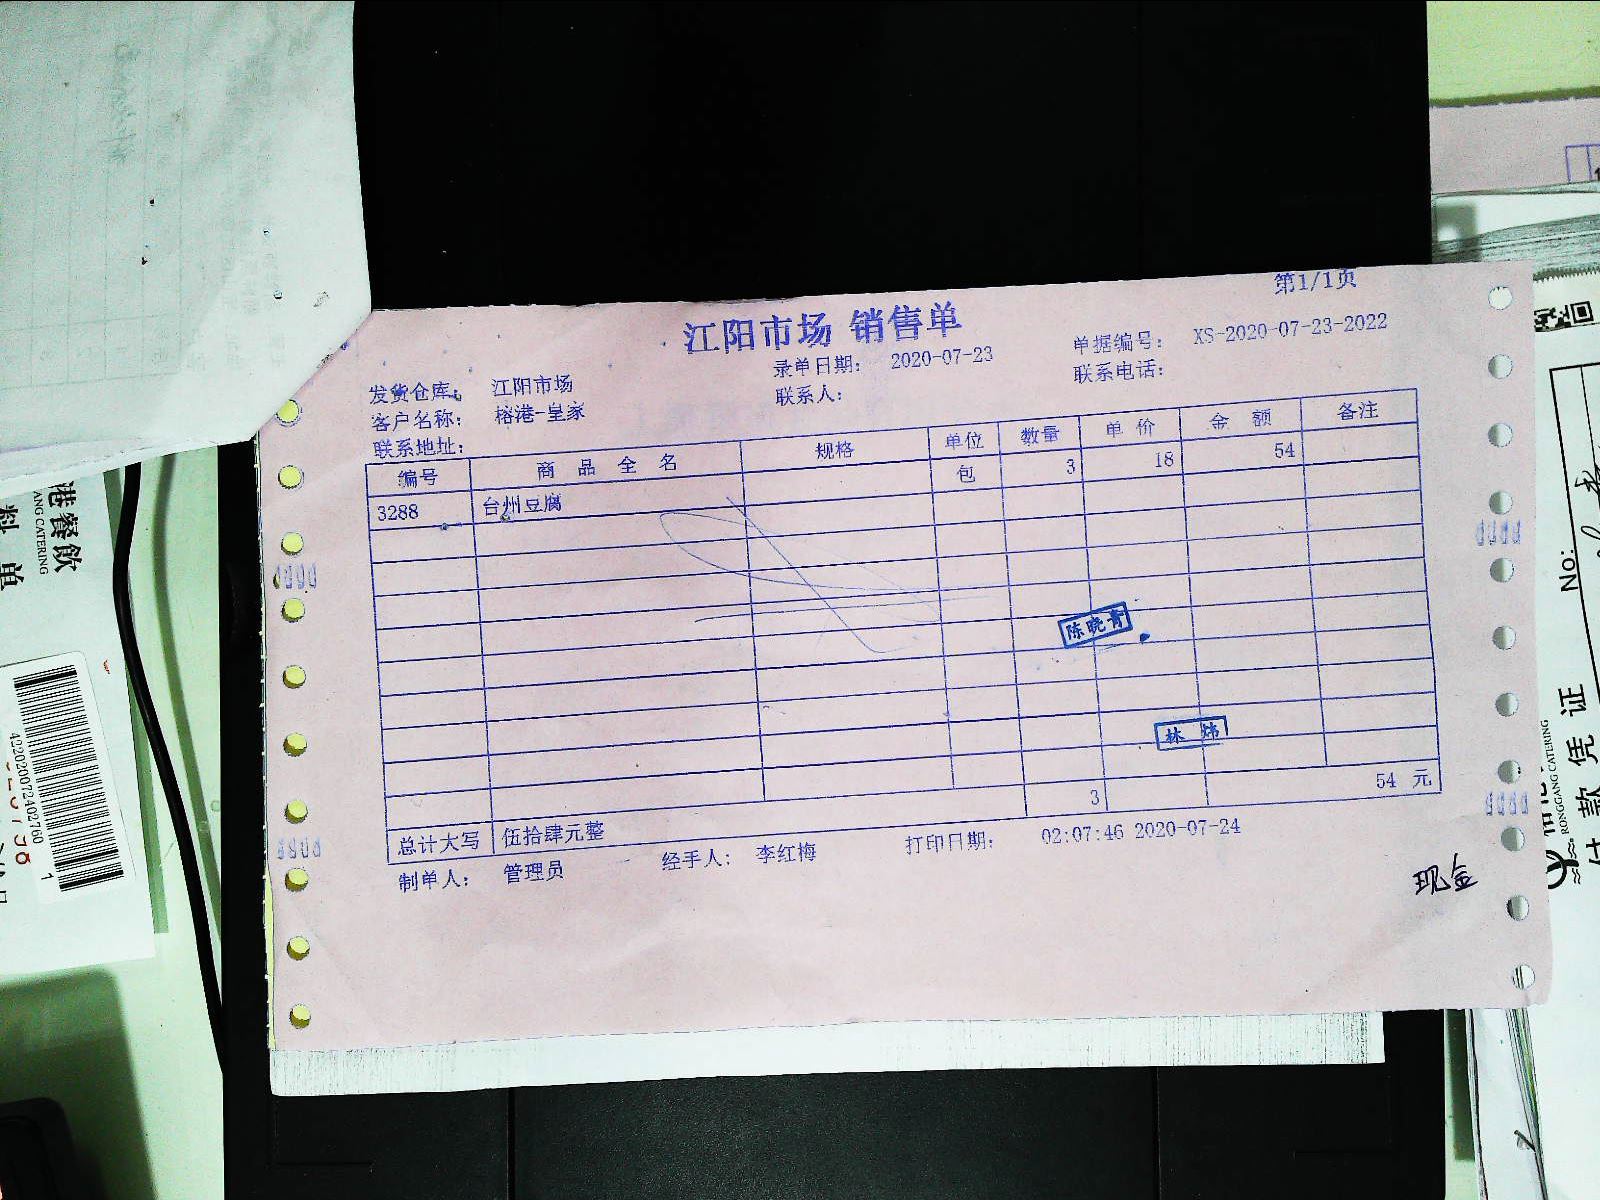 第1/1页
江阳市场 销售单
录单日期： 2020-07-23 单据编号： XS-2020-07-23-2022
发货仓库： 江阳市场 联系人： 联系电话：
客户名称： 榕港-皇家
联系地址：
编号 商品全名 规格 单位 数量 单价 金额 备注
3288 台州豆腐 包 3 18 54
陈晓青
林炜
3 54 元
总计大写 伍拾肆元整
制单人： 管理员 经手人： 李红梅 打印日期： 02:07:46 2020-07-24
现金
港餐飲
ANG CATERING
料单
422020072402760
1
No:
付款凭证
RONGGANG CATERING